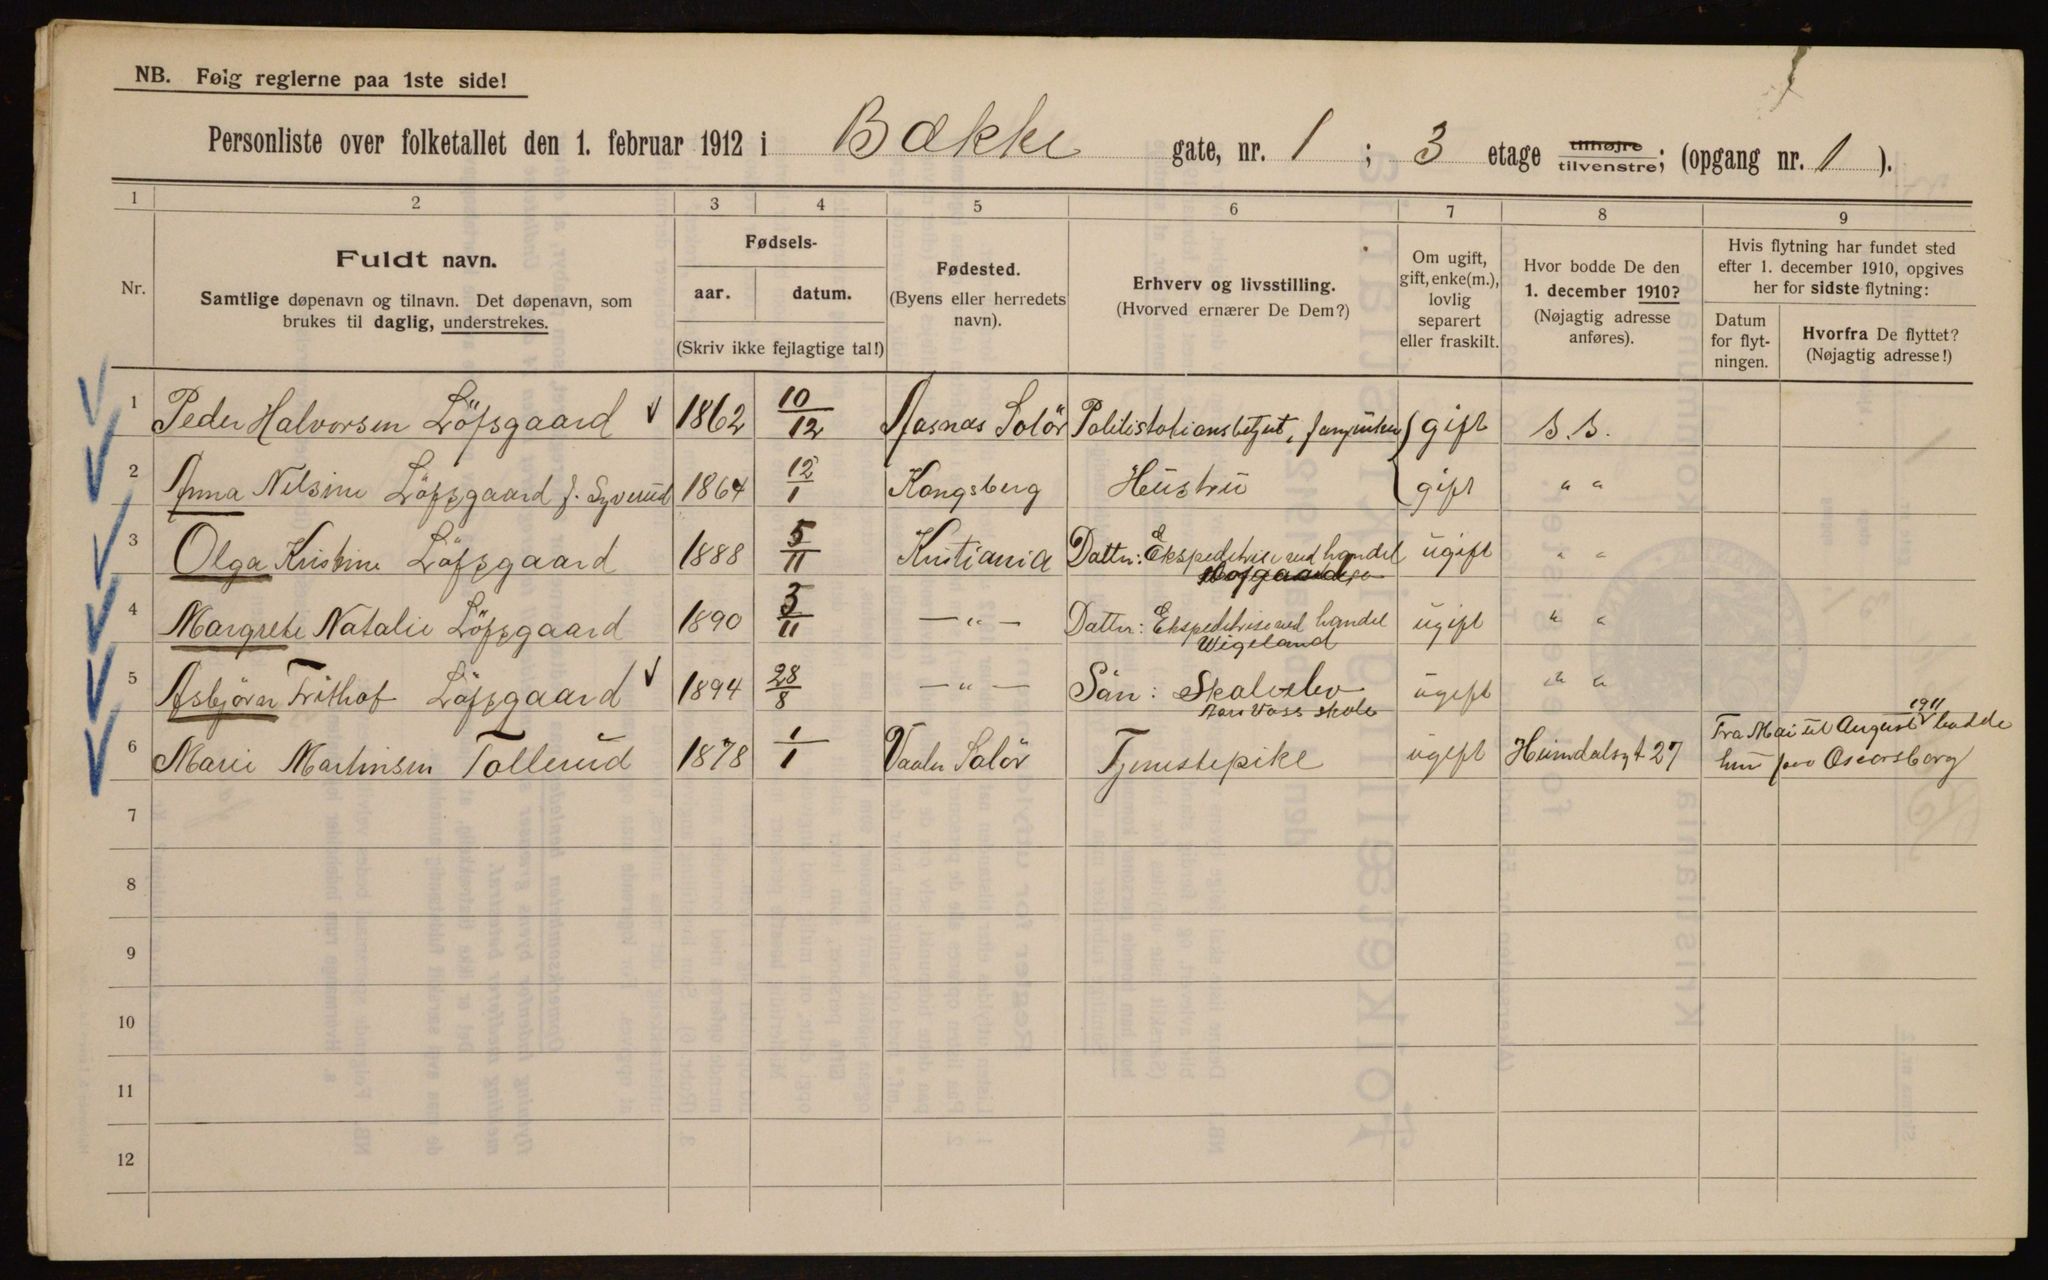 NB. Følg reglerne paa 1ste side!
Personliste over folketallet den 1. februar 1912 i Bække gate, nr. 1 ; 3 etage tilhøjre tilvenstre; (opgang nr. 1 ).
1 2 3 4 5 6 7 8 9
Nr.
Fuldt navn.
Samtlige døpenavn og tilnavn. Det døpenavn, som
brukes til daglig, understrekes.
Fødsels-
aar. datum.
(Skriv ikke fejlagtige tal!)
Fødested.
(Byens eller herredets
navn).
Erhverv og livsstilling.
(Hvorved ernærer De Dem?)
Om ugift,
gift, enke(m.),
lovlig
separert
eller fraskilt.
Hvor bodde De den
1. december 1910?
(Nøjagtig adresse
anføres).
Hvis flytning har fundet sted
efter 1. december 1910, opgives
her for sidste flytning:
Datum
for flyt-
ningen.
Hvorfra De flyttet?
(Nøjagtig adresse!)
1 Peder Halvorsen Löfsgaard 1862 10/12 Aasnas Solör Politistationsbetjent, gift s.s.
2 Anna Nilsine Löfsgaard f. Syverud 1864 12/1 Kongsberg Hüstrü gift " "
3 Olga Kristine Löfsgaard 1888 5/11 Kristiania Dattr: Ekspeditrise ved handel ugift " "
4 Margrete Natalie Löfsgaard 1890 3/11 — " — Dattr: Ekspeditrise ved handel ugift " "
Wigeland
5 Asbjörn Frithof Löfsgaard 1894 28/8 — " — Sön: Skoleelev ugift " "
Aars Voss skole
6 Marie Martinsen Tollerud 1878 1/1 Vaaler Solör Tjenestepike ugift Heimdalsgt 27 Fra Mai til August 1911 bodde
hun paa Oscarsborg
7
8
9
10
11
12